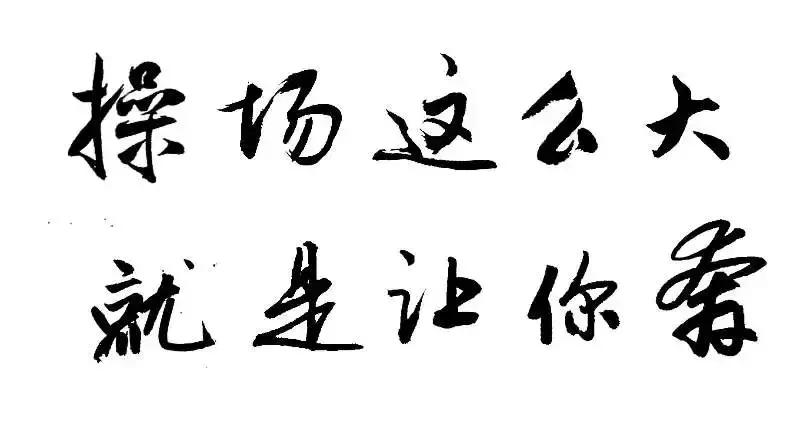 操场这么大
就是让你奔